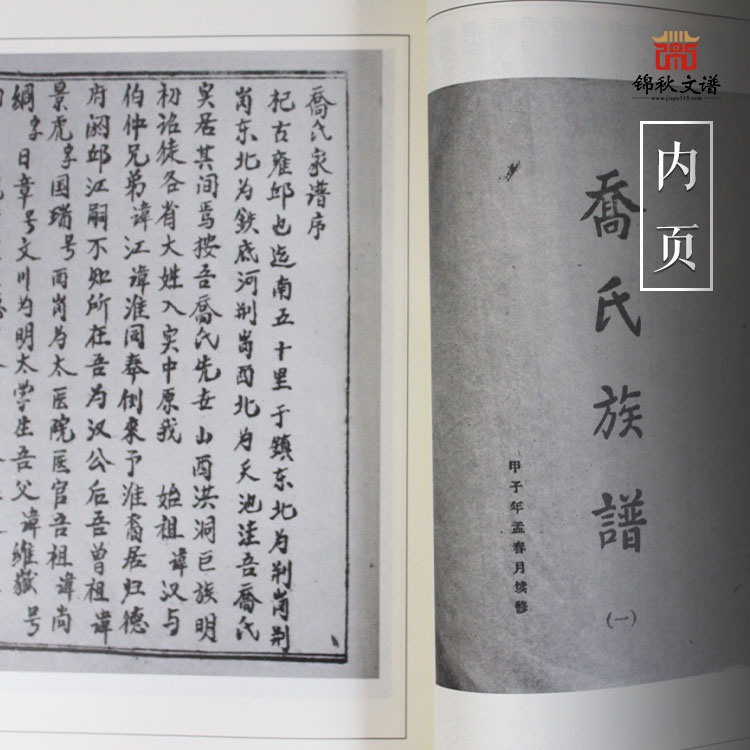 锦秋文谱
www.jiapu315.com
内页
喬氏族譜
(一)
甲子年孟春月续修
喬氏家谱序
杞古雍邱也迄南五十里于鎮东北为荆崗荆
崗东北为铁底河荆崗西北为天池洼吾喬氏
奐居其间焉按吾喬氏先世山西洪洞巨族明
初诒徒各省大姓入实中原我 始祖諱汉与
伯仲兄弟諱江諱淮同奉倒來予淮裔居归德
府阙邱江嗣不知所在吾为汉公后吾曾祖諱
景虎字国瑞号西崗为太医院医官吾祖諱尚
綱字日章号文川为明太学生吾父諱維嶽号